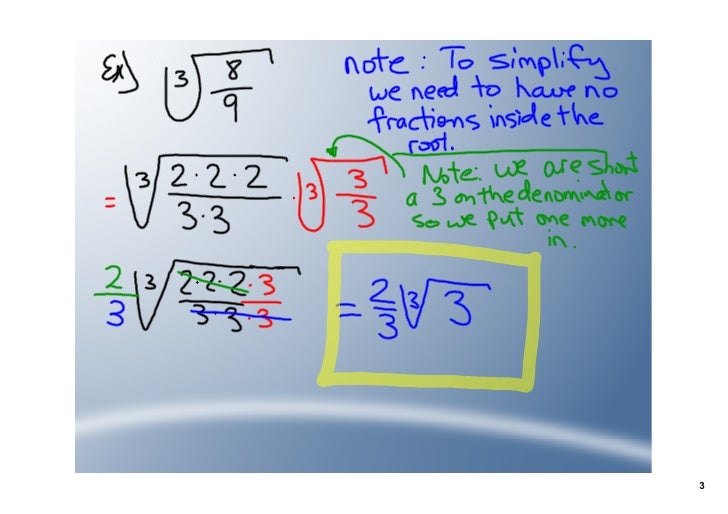 Ex) ∛(8/9)
note: To simplify
we need to have no
fractions inside the
root.
= ∛(2·2·2/3·3) · ∛(3/3)
Note: we are short
a 3 on the denominator
so we put one more
in.
2/3 ∛(2·2·2·3/3·3·3) = 2/3 ∛3
3